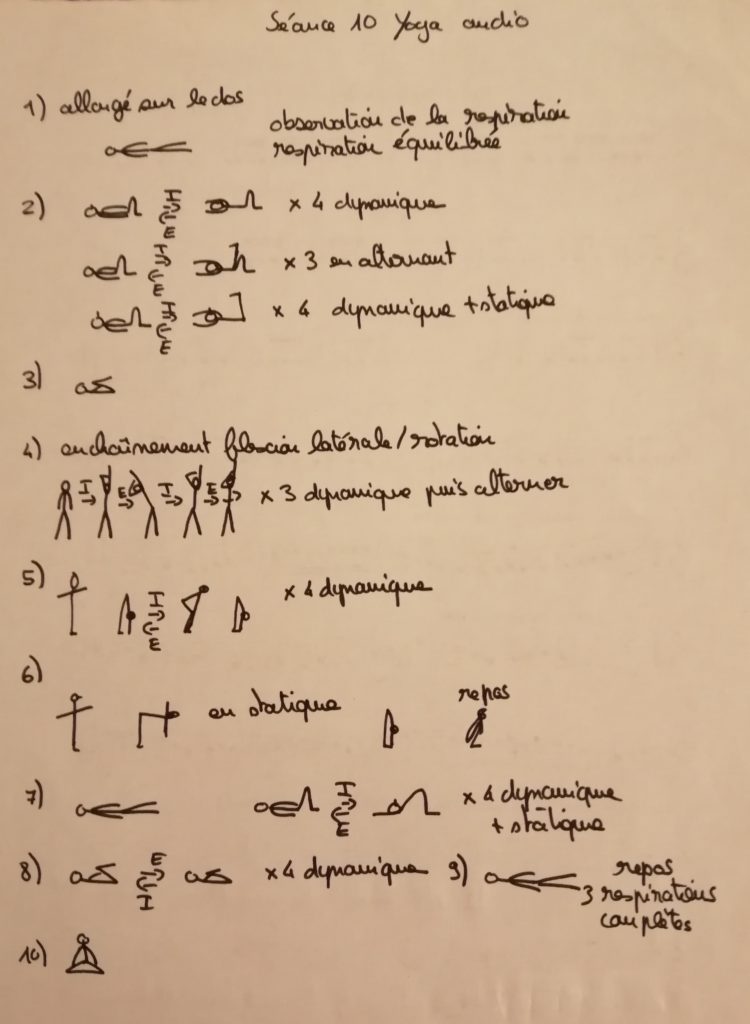 Séance 10 Yoga audio
1) allongé sur le dos
observation de la respiration
respiration équilibrée
2) I E x 4 dynamique
I E x 3 en alternant
I E x 4 dynamique + statique
3)
4) enchaînement flexion latérale/rotation
I E I E x 3 dynamique puis alterner
5) I E x 4 dynamique
6)
en statique repos
7) I E x 4 dynamique
+ statique
8) E I x 4 dynamique 9) repos
3 respirations
complètes
10)